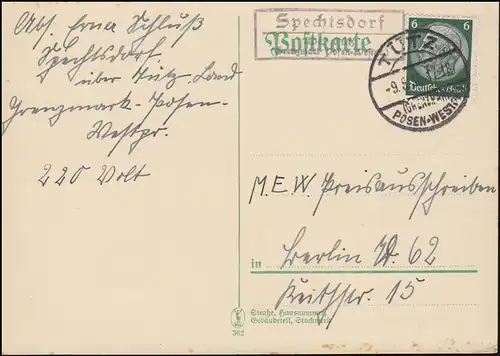 Abs. Erna Schluß
Spechtsdorf
über Tütz-Land
Grenzmark-Posen-
Westpr.
220 Volt
Spechtsdorf
Postkarte
6 6
Deutsches Reich
TÜTZ
-9.
POSEN-WESTPR
M.E.W. Preisausschreiben
Berlin W. 62
in
Keithstr. 15
Straße, Hausnummer,
Gebäudeteil, Stockwerk
362